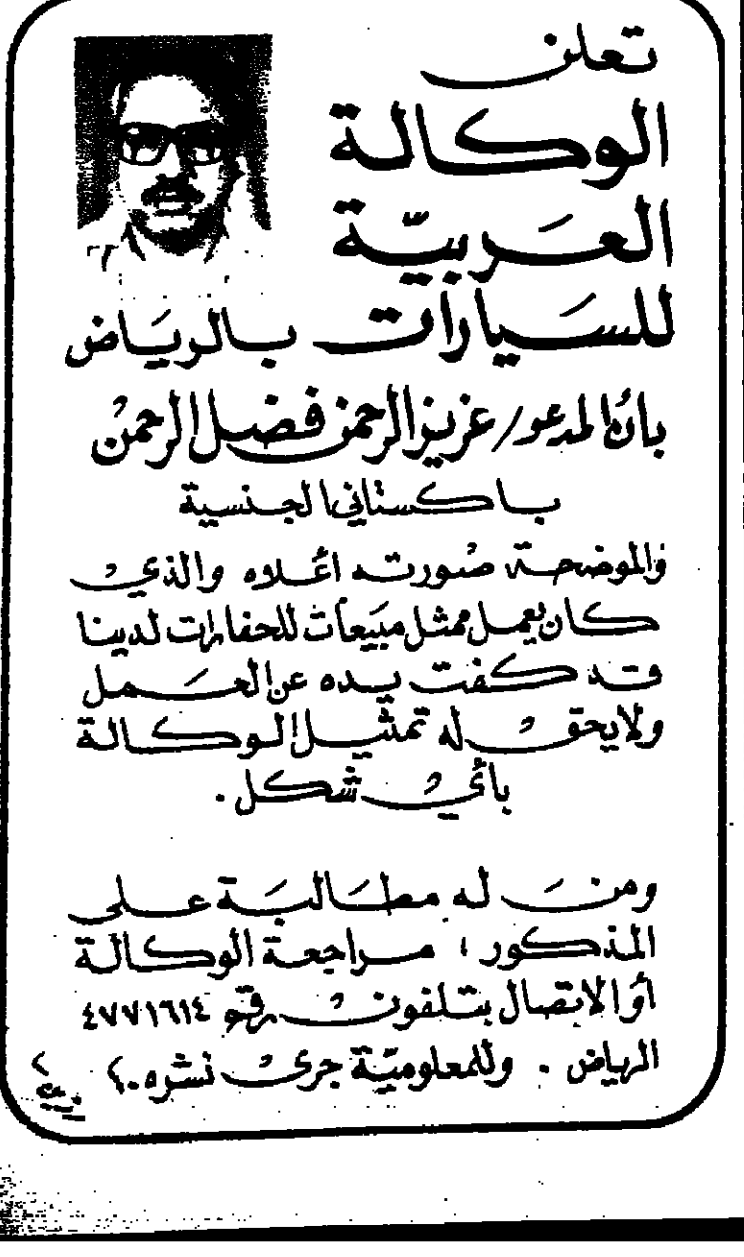 تعلن
الوكالة
العَربيّة
للسَيارات بالريَاض
بأن المدعو/ عزيز الرحمن فضل الرحمن
باكستاني الجنسية
والموضحة صُورته أعُلاه والذي
كان يعمل ممثل مبيَعات للحفارات لدينا
قد كفت يده عن العَمل
ولا يحق له تمثيل الوكالة
بأي شكل .
ومن له مطَالبَة على
المذكور ، مراجعة الوكالة
أو الاتصال بتلفون رقم ٤٧٧١٦١٤
الرياض . وللمعلوميّة جرى نشره .